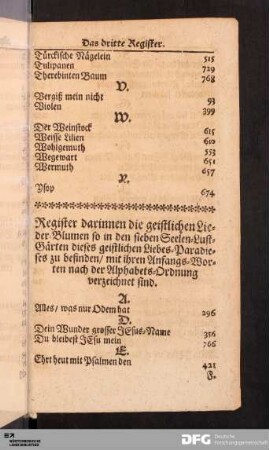 Das dritte Register.
Türckische Nägelein 515
Tulipanen 729
Therebinten Baum 768
V.
Vergiß mein nicht 93
Violen 399
W.
Der Weinstock 615
Weisse Lilien 610
Wohlgemuth 553
Wegewart 651
Wermuth 657
Y.
Ysop 674
Register darinnen die geistlichen Lie-
der Blumen so in den sieben Seelen-Lust-
Gärten dieses geistlichen Liebes-Paradie-
ses zu befinden/ mit ihren Anfangs-Wor-
ten nach der Alphabets-Ordnung
verzeichnet sind.
A.
Alles/ was nur Odem hat 296
D.
Dein Wunder grosser JEsus-Name 356
Du bleibest JEsu mein 766
E.
Ehrt heut mit Psalmen den 421
F.
DFG Deutsche
Forschungsgemeinschaft